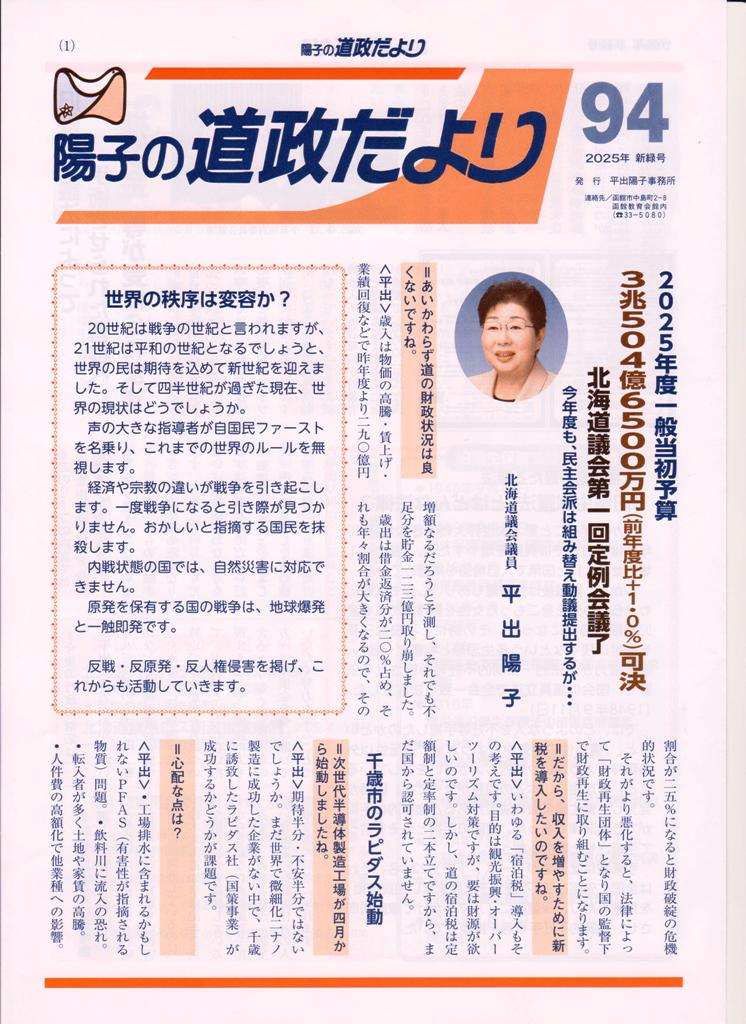 (1)
陽子の道政だより
陽子の道政だより
94
2025年 新緑号
発 行 平出陽子事務所
連絡先/函館市中島町2-8
函館教育会館内
(☎33-5080)
2025年度一般当初予算
3兆504億6500万円(前年度比+1・0%)可決
北海道議会第一回定例会議了
今年度も、民主会派は組み替え動議提出するが・・・
北海道議会議員 平出陽子
=あいかわらず道の財政状況は良
くないですね。
<平出>歳入は物価の高騰・賃上げ・
業績回復などで昨年度より二九〇億円
増額なるだろうと予測し、それでも不
足分を貯金一二三億円取り崩しました。
歳出は借金返済分が二〇%占め、そ
れも年々割合が大きくなるので、その
割合が二五%になると財政破綻の危機
的状況です。
それがより悪化すると、法律によっ
て「財政再生団体」となり国の監督下
で財政再生に取り組むことになります。
=だから、収入を増やすために新
税を導入したいのですね。
<平出>いわゆる「宿泊税」導入もそ
の考えです。目的は観光振興・オーバー
ツーリズム対策ですが、要は財源が欲
しいのです。しかし、道の宿泊税は定
額制と定率制の二本立てですから、ま
だ国から認可されていません。
千歳市のラピダス始動
=次世代半導体製造工場が四月か
ら始動しましたね。
<平出>期待半分・不安半分ではない
でしょうか。まだ世界で微細化二ナノ
製造に成功した企業がない中で、千歳
に誘致したラピダス社(国策事業)が
成功するかどうかが課題です。
=心配な点は?
<平出>・工場排水に含まれるかもし
れないPFAS(有害性が指摘される
物質)問題。・飲料川に流入の恐れ。
・転入者が多く土地や家賃の高騰。
・人件費の高額化で他業種への影響。
世界の秩序は変容か?
20世紀は戦争の世紀と言われますが、
21世紀は平和の世紀となるでしょうと、
世界の民は期待を込めて新世紀を迎えま
した。そして四半世紀が過ぎた現在、世
界の現状はどうでしょうか。
声の大きな指導者が自国民ファースト
を名乗り、これまでの世界のルールを無
視します。
経済や宗教の違いが戦争を引き起こし
ます。一度戦争になると引き際が見つか
りません。おかしいと指摘する国民を抹
殺します。
内戦状態の国では、自然災害に対応で
きません。
原発を保有する国の戦争は、地球爆発
と一触即発です。
反戦・反原発・反人権侵害を掲げ、こ
れからも活動していきます。